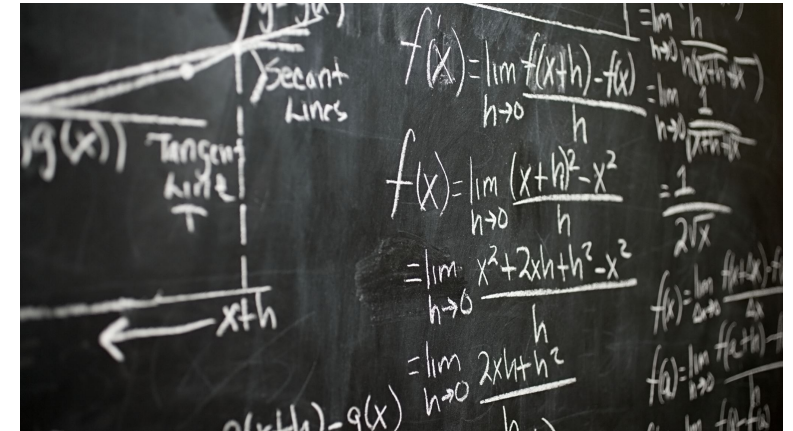 Secant
Lines
g(x))
Tangent
Line
T
x+h
g(x+h)-g(x)
f'(x)=lim h→0 f(x+h)-f(x) / h
f(x)=lim h→0 (x+h)²-x² / h
=lim h→0 x²+2xh+h²-x² / h
=lim h→0 2xh+h² / h
=lim h→0 h
=lim h→0 1
=1 / 2√x
f(x)=lim
f(a)=lim h→0